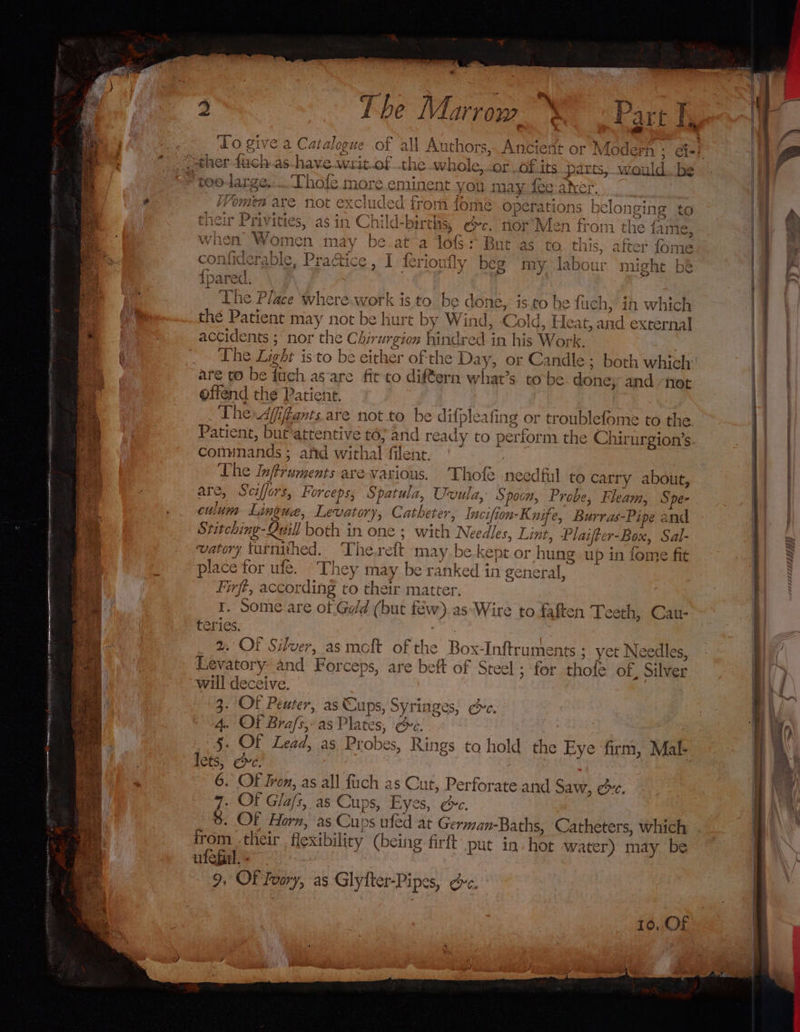 2 The Marrow Part I.
To give a Catalogue of all Authors, Ancient or Modern; ei-
ther ſuch as have writ of the whole, or of its parts, would be
too large. Thoſe more eminent you may ſee after.
Women are not excluded from ſome operations belonging to
their Privities, as in Child-births, &c. nor Men from the ſame,
when Women may be at a loſs: But as to this, after ſome
conſiderable, Practice, I ſeriouſly beg my labour might be
ſpared.
The Place where work is to be done, is to be ſuch, in which
the Patient may not be hurt by Wind, Cold, Heat, and external
accidents; nor the Chirurgion hindred in his Work.
The Light is to be either of the Day, or Candle; both which
are to be ſuch as are fit to diſcern what's to be done, and not
offend the Patient.
The Aſſiſtants are not to be diſpleaſing or troubleſome to the
Patient, but attentive to, and ready to perform the Chirurgion's
commands; and withal ſilent.
The Inſtruments are various. Thoſe needful to carry about,
are, Sciſſors, Forceps, Spatula, Uvula, Spoon, Probe, Fleam, Spe-
culum Linguæ, Levatory, Catheter, Inciſion-Knife, Burras-Pipe and
Stitching-Quill both in one; with Needles, Lint, Plaiſter-Box, Sal-
vatory furniſhed. The reſt may be kept or hung up in ſome fit
place for uſe. They may be ranked in general,
Firſt, according to their matter.
1. Some are of Gold (but few) as Wire to faſten Teeth, Cau-
teries.
2. Of Silver, as moſt of the Box-Inſtruments; yet Needles,
Levatory and Forceps, are beſt of Steel; for thoſe of Silver
will deceive.
3. Of Peuter, as Cups, Syringes, &c.
4. Of Braſs, as Plates, &c.
5. Of Lead, as Probes, Rings to hold the Eye firm, Mal-
lets, &c.
6. Of Iron, as all ſuch as Cut, Perforate and Saw, &c.
7. Of Glaſs, as Cups, Eyes, &c.
8. Of Horn, as Cups uſed at German-Baths, Catheters, which
from their flexibility (being firſt put in hot water) may be
uſeful.
9. Of Ivory, as Glyſter-Pipes, &c.
10. Of